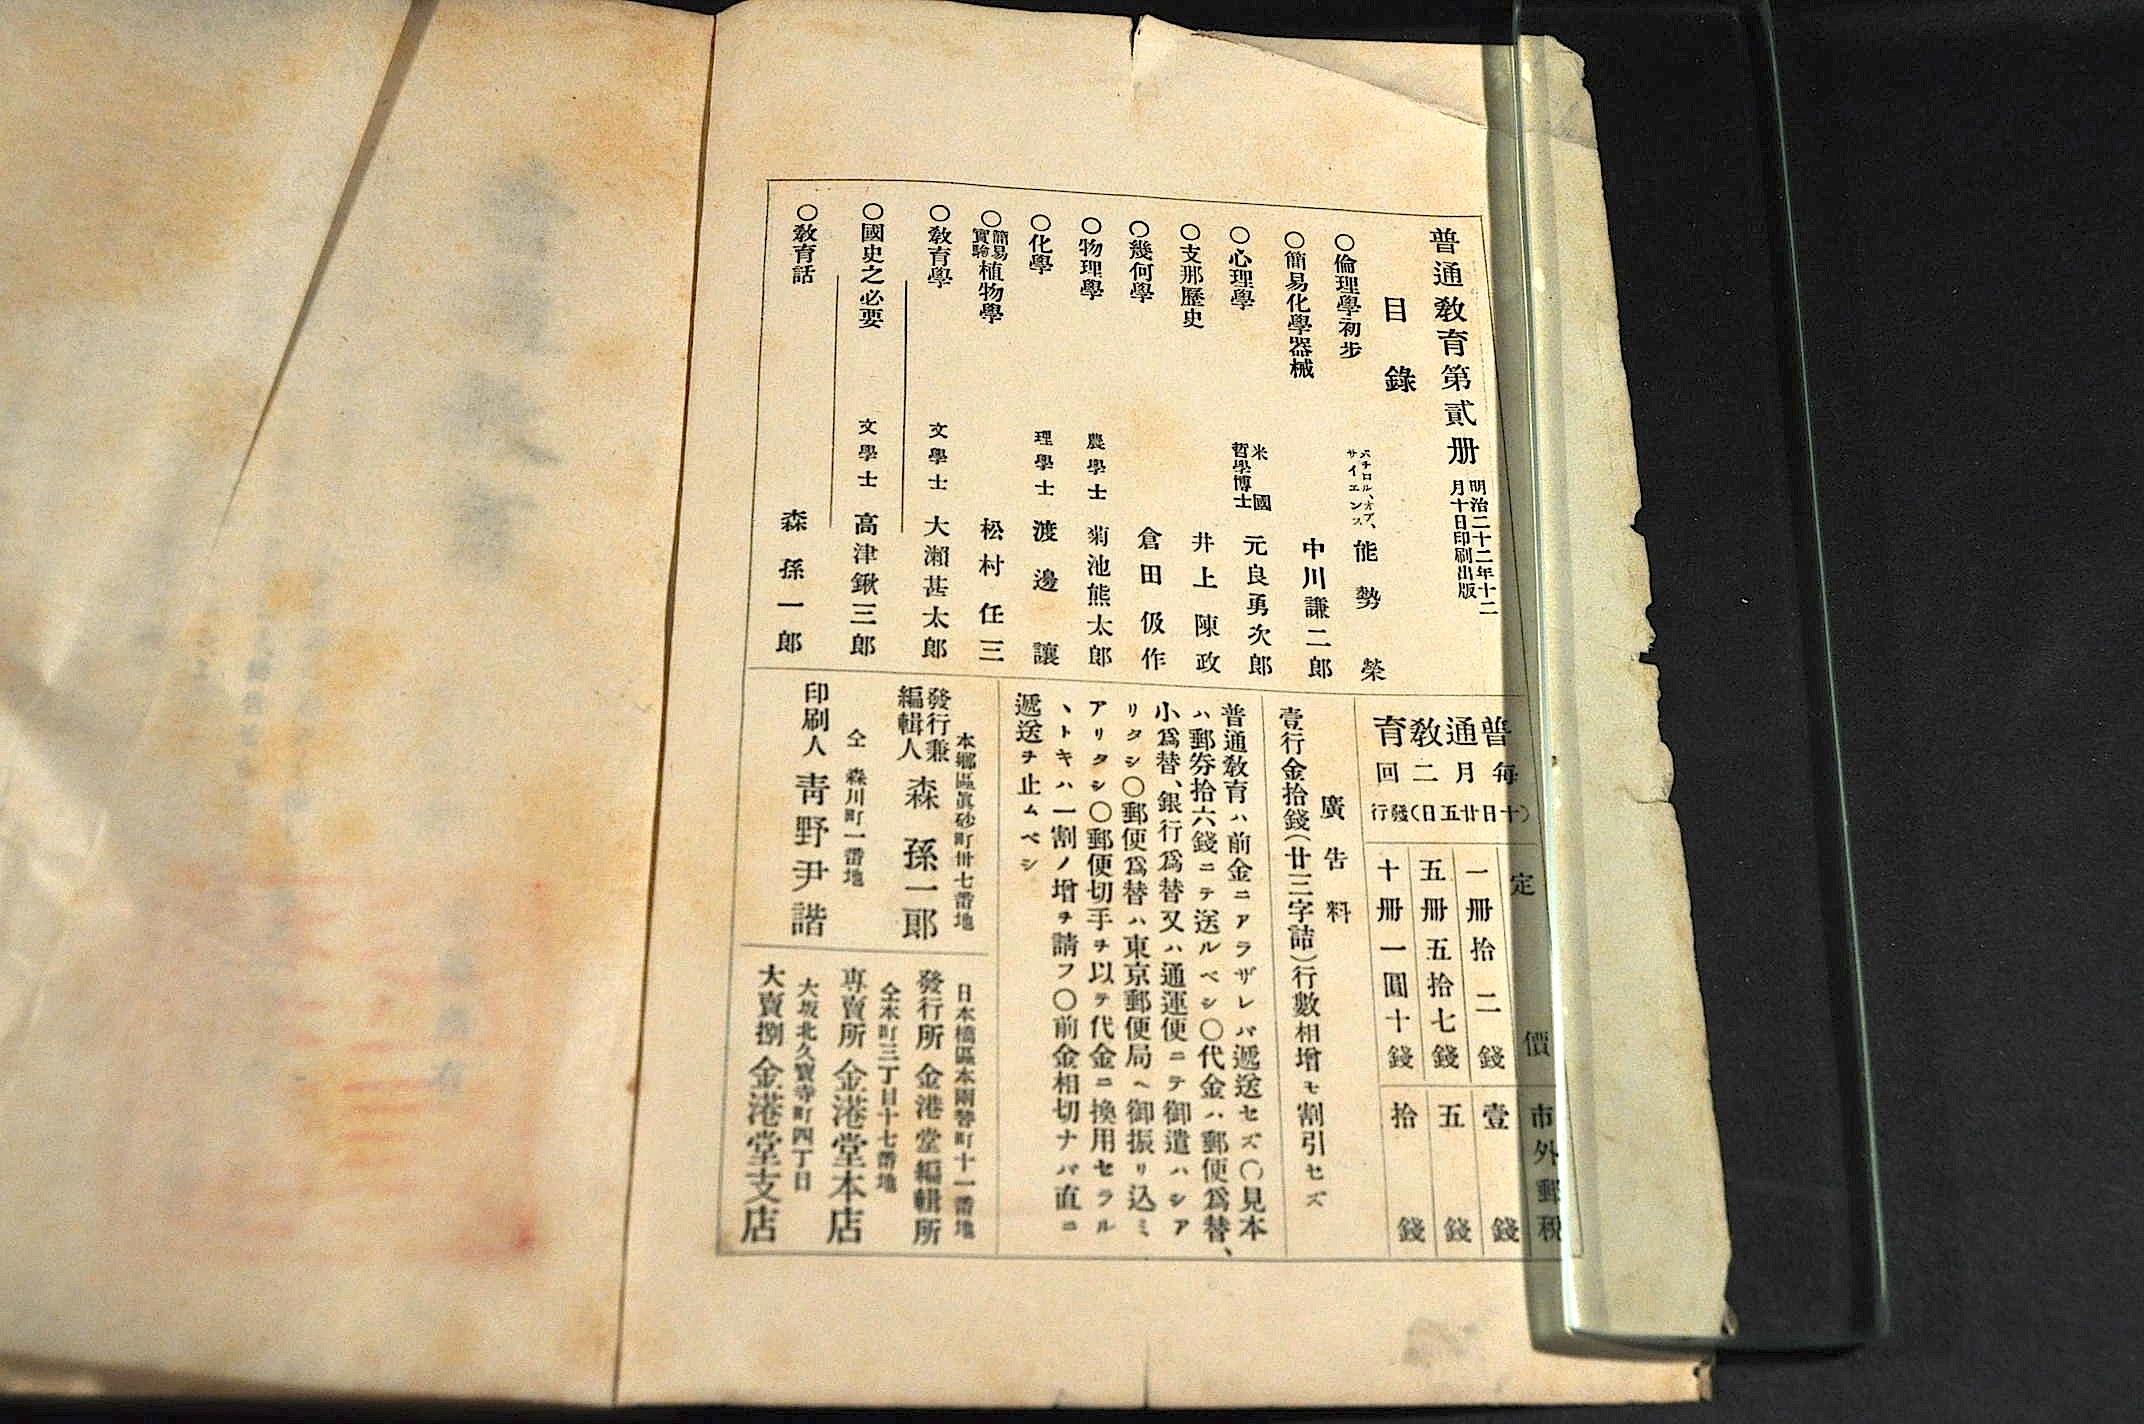 普通敎育第貳册 明治二十二年十二月十日印刷出版
目錄
○倫理學初步 バチロル、オブ、サイエンス 能勢榮
○簡易化學器械 中川謙二郎
○心理學 米國哲學博士 元良勇次郎
○支那歷史 井上陳政
○幾何學 倉田伋作
○物理學 農學士 菊池熊太郎
○化學 理學士 渡邊讓
○簡易實驗植物學 松村任三
○敎育學 文學士 大瀨甚太郎
○國史之必要 文學士 高津鍬三郎
○敎育話 森孫一郎
普通敎育
每月二回
(十日廿五日)發行
定價 市外郵稅
一冊 拾二錢 壹錢
五冊 五拾七錢 五錢
十冊 一圓十錢 拾錢
廣告料
壹行金拾錢(廿三字詰)行數相增モ割引セズ
普通敎育ハ前金ニアラザレバ遞送セズ○見本
ハ郵券拾六錢ニテ送ルベシ○代金ハ郵便爲替、
小爲替、銀行爲替又ハ通運便ニテ御遣ハシア
リタシ○郵便爲替ハ東京郵便局ヘ御振リ込ミ
アリタシ○郵便切手ヲ以テ代金ニ換用セラル
ヽトキハ一割ノ增ヲ請フ○前金相切ナバ直ニ
遞送ヲ止ムベシ
本鄕區眞砂町卅七番地
發行兼編輯人 森孫一郞
仝 森川町一番地
印刷人 靑野尹諧
日本橋區本兩替町十一番地
發行所 金港堂編輯所
仝本町三丁目十七番地
專賣所 金港堂本店
大坂北久寶寺町四丁目
大賣捌 金港堂支店